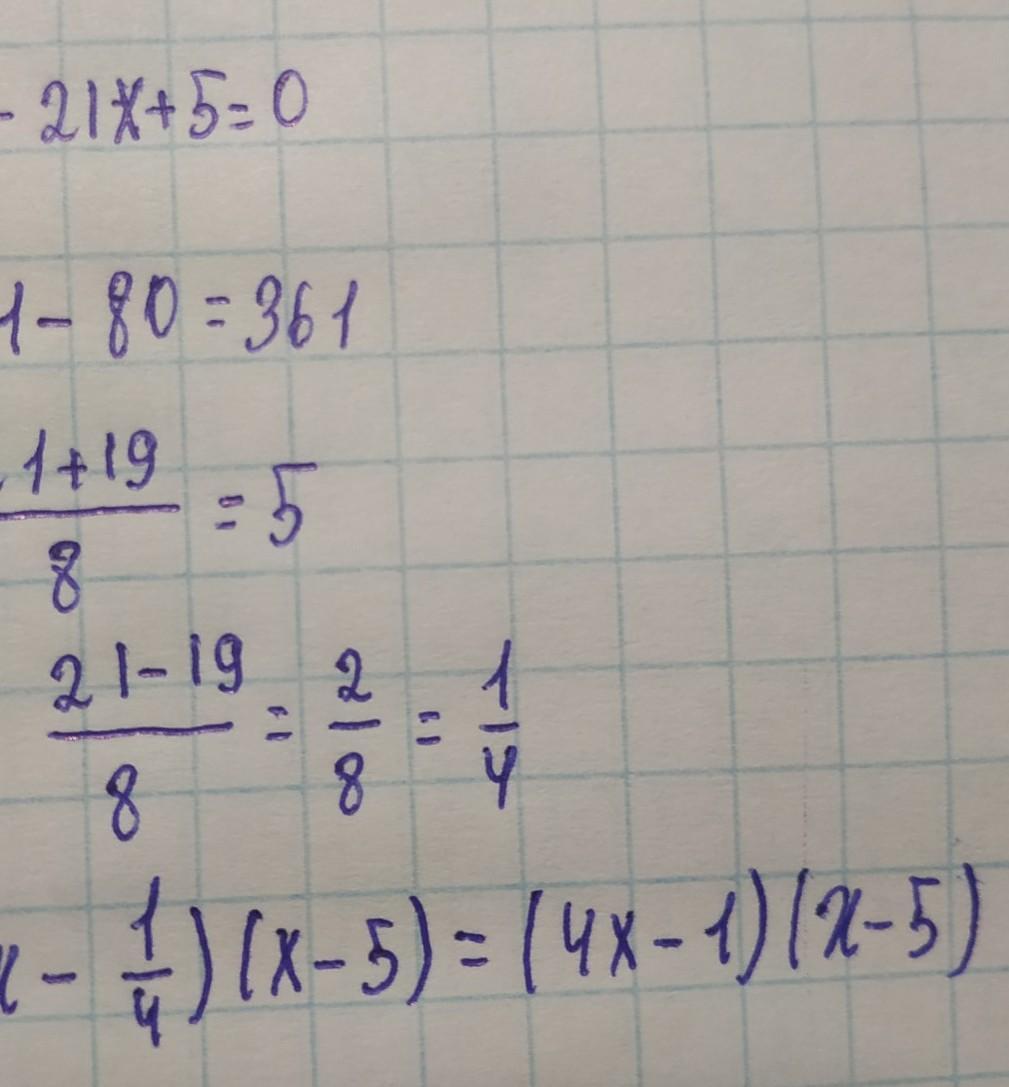 - 21x+5=0
1 - 80 = 361
1+19/8 = 5
21-19/8 = 2/8 = 1/4
x - 1/4)(x-5) = (4x-1)(x-5)